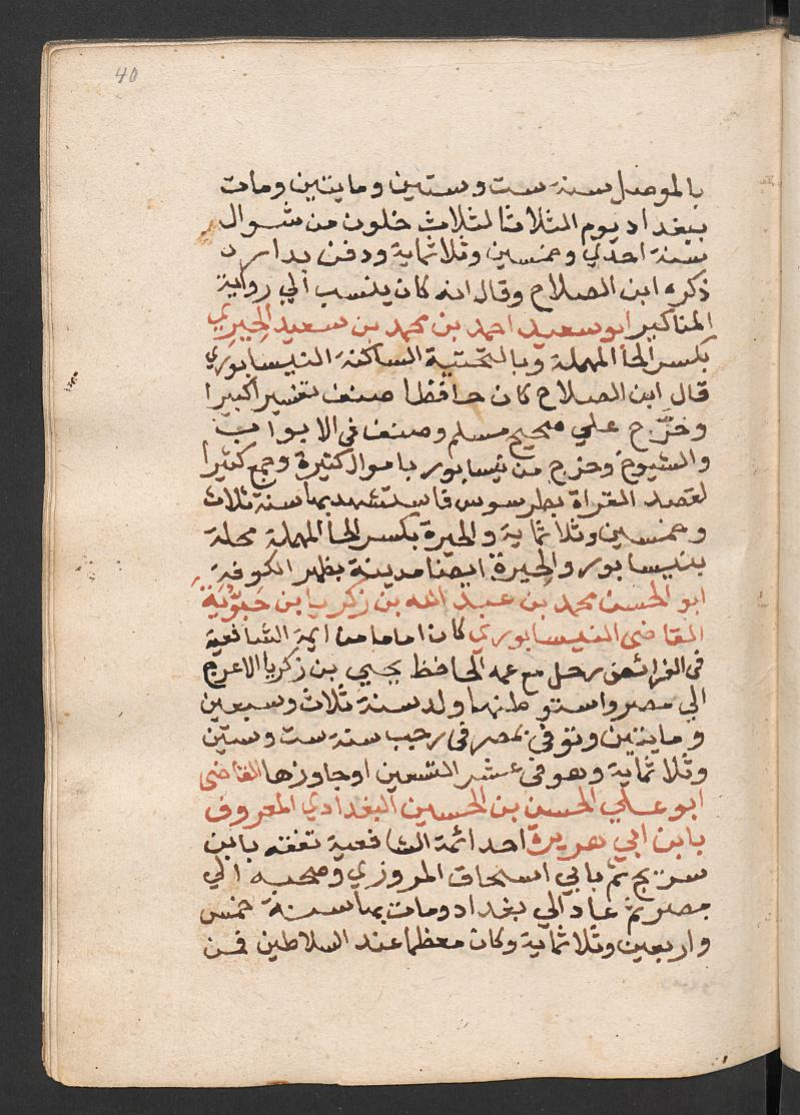 40
بالموصل سنة ست وستين ومايتين ومات
ببغداد يوم الثلاثا لثلاث خلون من شوال
سنة احدي وخمسين وثلاثماية ودفن بداره
ذكره ابن الصلاح وقال انه كان ينسب الي رواية
المناكير ابو سعيد احمد بن محمد بن سعيد الحِيرِي
بكسر الحا المهملة وبالتحتية الساكنة النيسابوري
قال ابن الصلاح كان حافظا صنف تفسيرا كبيرا
وخرّج علي صحيح مسلم وصنف في الابواب
والشيوخ وخرج من نيسابور باموال كثيرة وجمع كثيرا
لقصد الغزاة بطرسوس فاستشهد بها سنة ثلاث
وخمسين وثلاثماية والحيرة بكسر الحا المهملة محلة
بنيسابور والحيرة ايضا مدينة بظهر الكوفة
ابو الحسن محمد بن عبد الله بن زكريا بن حَيّوُيَة
القاضي النيسابوري كان اماما من ايمة الشافعية
في الفرائض رحل مع عمه الحافظ يحيي بن زكريا الاعرج
الي مصر واستوطنها ولد سنة ثلاث وسبعين
ومايتين وتوفي بمصر في رجب سنة ست وستين
وثلاثماية وهو في عشر التسعين اوجاوزها القاضي
ابو علي الحسن بن الحسين البغدادي المعروف
بابن ابي هريرة احد ائمة الشافعية تفقه بابن
سريج ثم بابي اسحاق المروزي وصحبه الي
مصر ثم عاد الي بغداد ومات بها سنة خمس
واربعين وثلاثماية وكان معظما عند السلاطين فمن